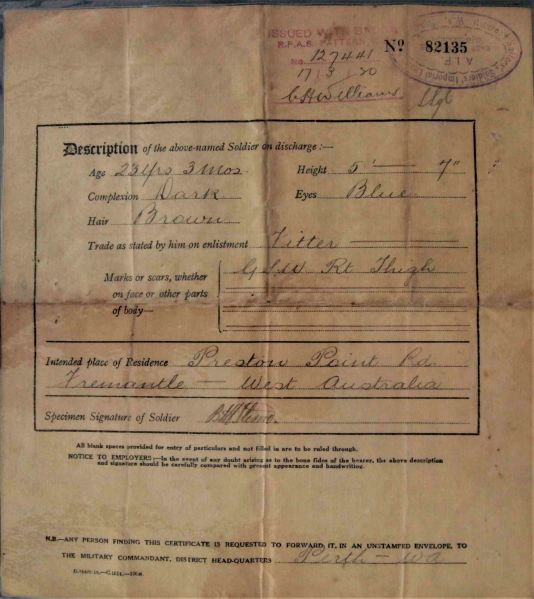 ISSUED WITH
R.F.A.S. PATTERN
No. 127441
17/3/20
C H Williams Sgt
No 82135
Soldiers' Imperial
A.I.F.
Description of the above-named Soldier on discharge:—
Age 23 yrs 3 Mos Height 5' — 7"
Complexion Dark Eyes Blue
Hair Brown
Trade as stated by him on enlistment Fitter
Marks or scars, whether
on face or other parts
of body—
G S W Rt Thigh
Intended place of Residence Preston Point Rd
Fremantle — West Australia
Specimen Signature of Soldier
All blank spaces provided for entry of particulars and not filled in are to be ruled through.
NOTICE TO EMPLOYERS:—In the event of any doubt arising as to the bona fides of the bearer, the above description
and signature should be carefully compared with present appearance and handwriting.
N.B.—ANY PERSON FINDING THIS CERTIFICATE IS REQUESTED TO FORWARD IT, IN AN UNSTAMPED ENVELOPE, TO
THE MILITARY COMMANDANT, DISTRICT HEAD-QUARTERS Perth — WA